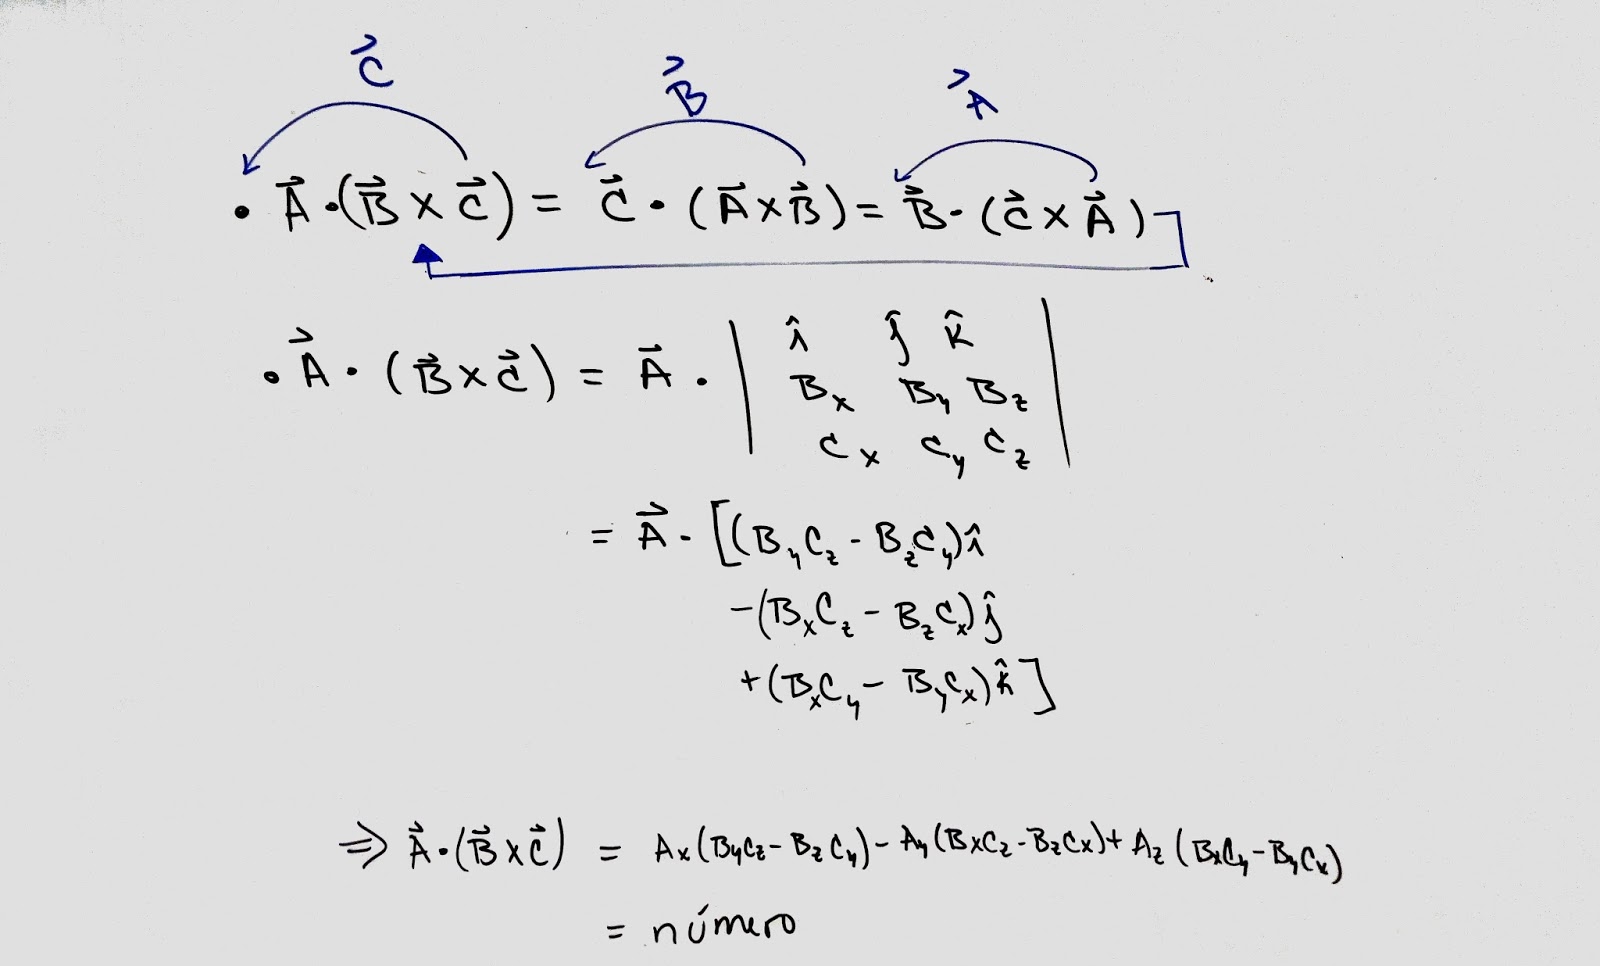 C⃗ B⃗ A⃗
• A⃗·(B⃗ × C⃗) = C⃗ · (A⃗ × B⃗) = B⃗ · (C⃗ × A⃗)
• A⃗ · (B⃗ × C⃗) = A⃗ · | î ĵ k̂
Bx By Bz
Cx Cy Cz |
= A⃗ · [(ByCz - BzCy)î
-(BxCz - BzCx)ĵ
+(BxCy - ByCx)k̂]
⇒ A⃗·(B⃗ × C⃗) = Ax(ByCz - BzCy) - Ay(BxCz - BzCx) + Az(BxCy - ByCx)
= número